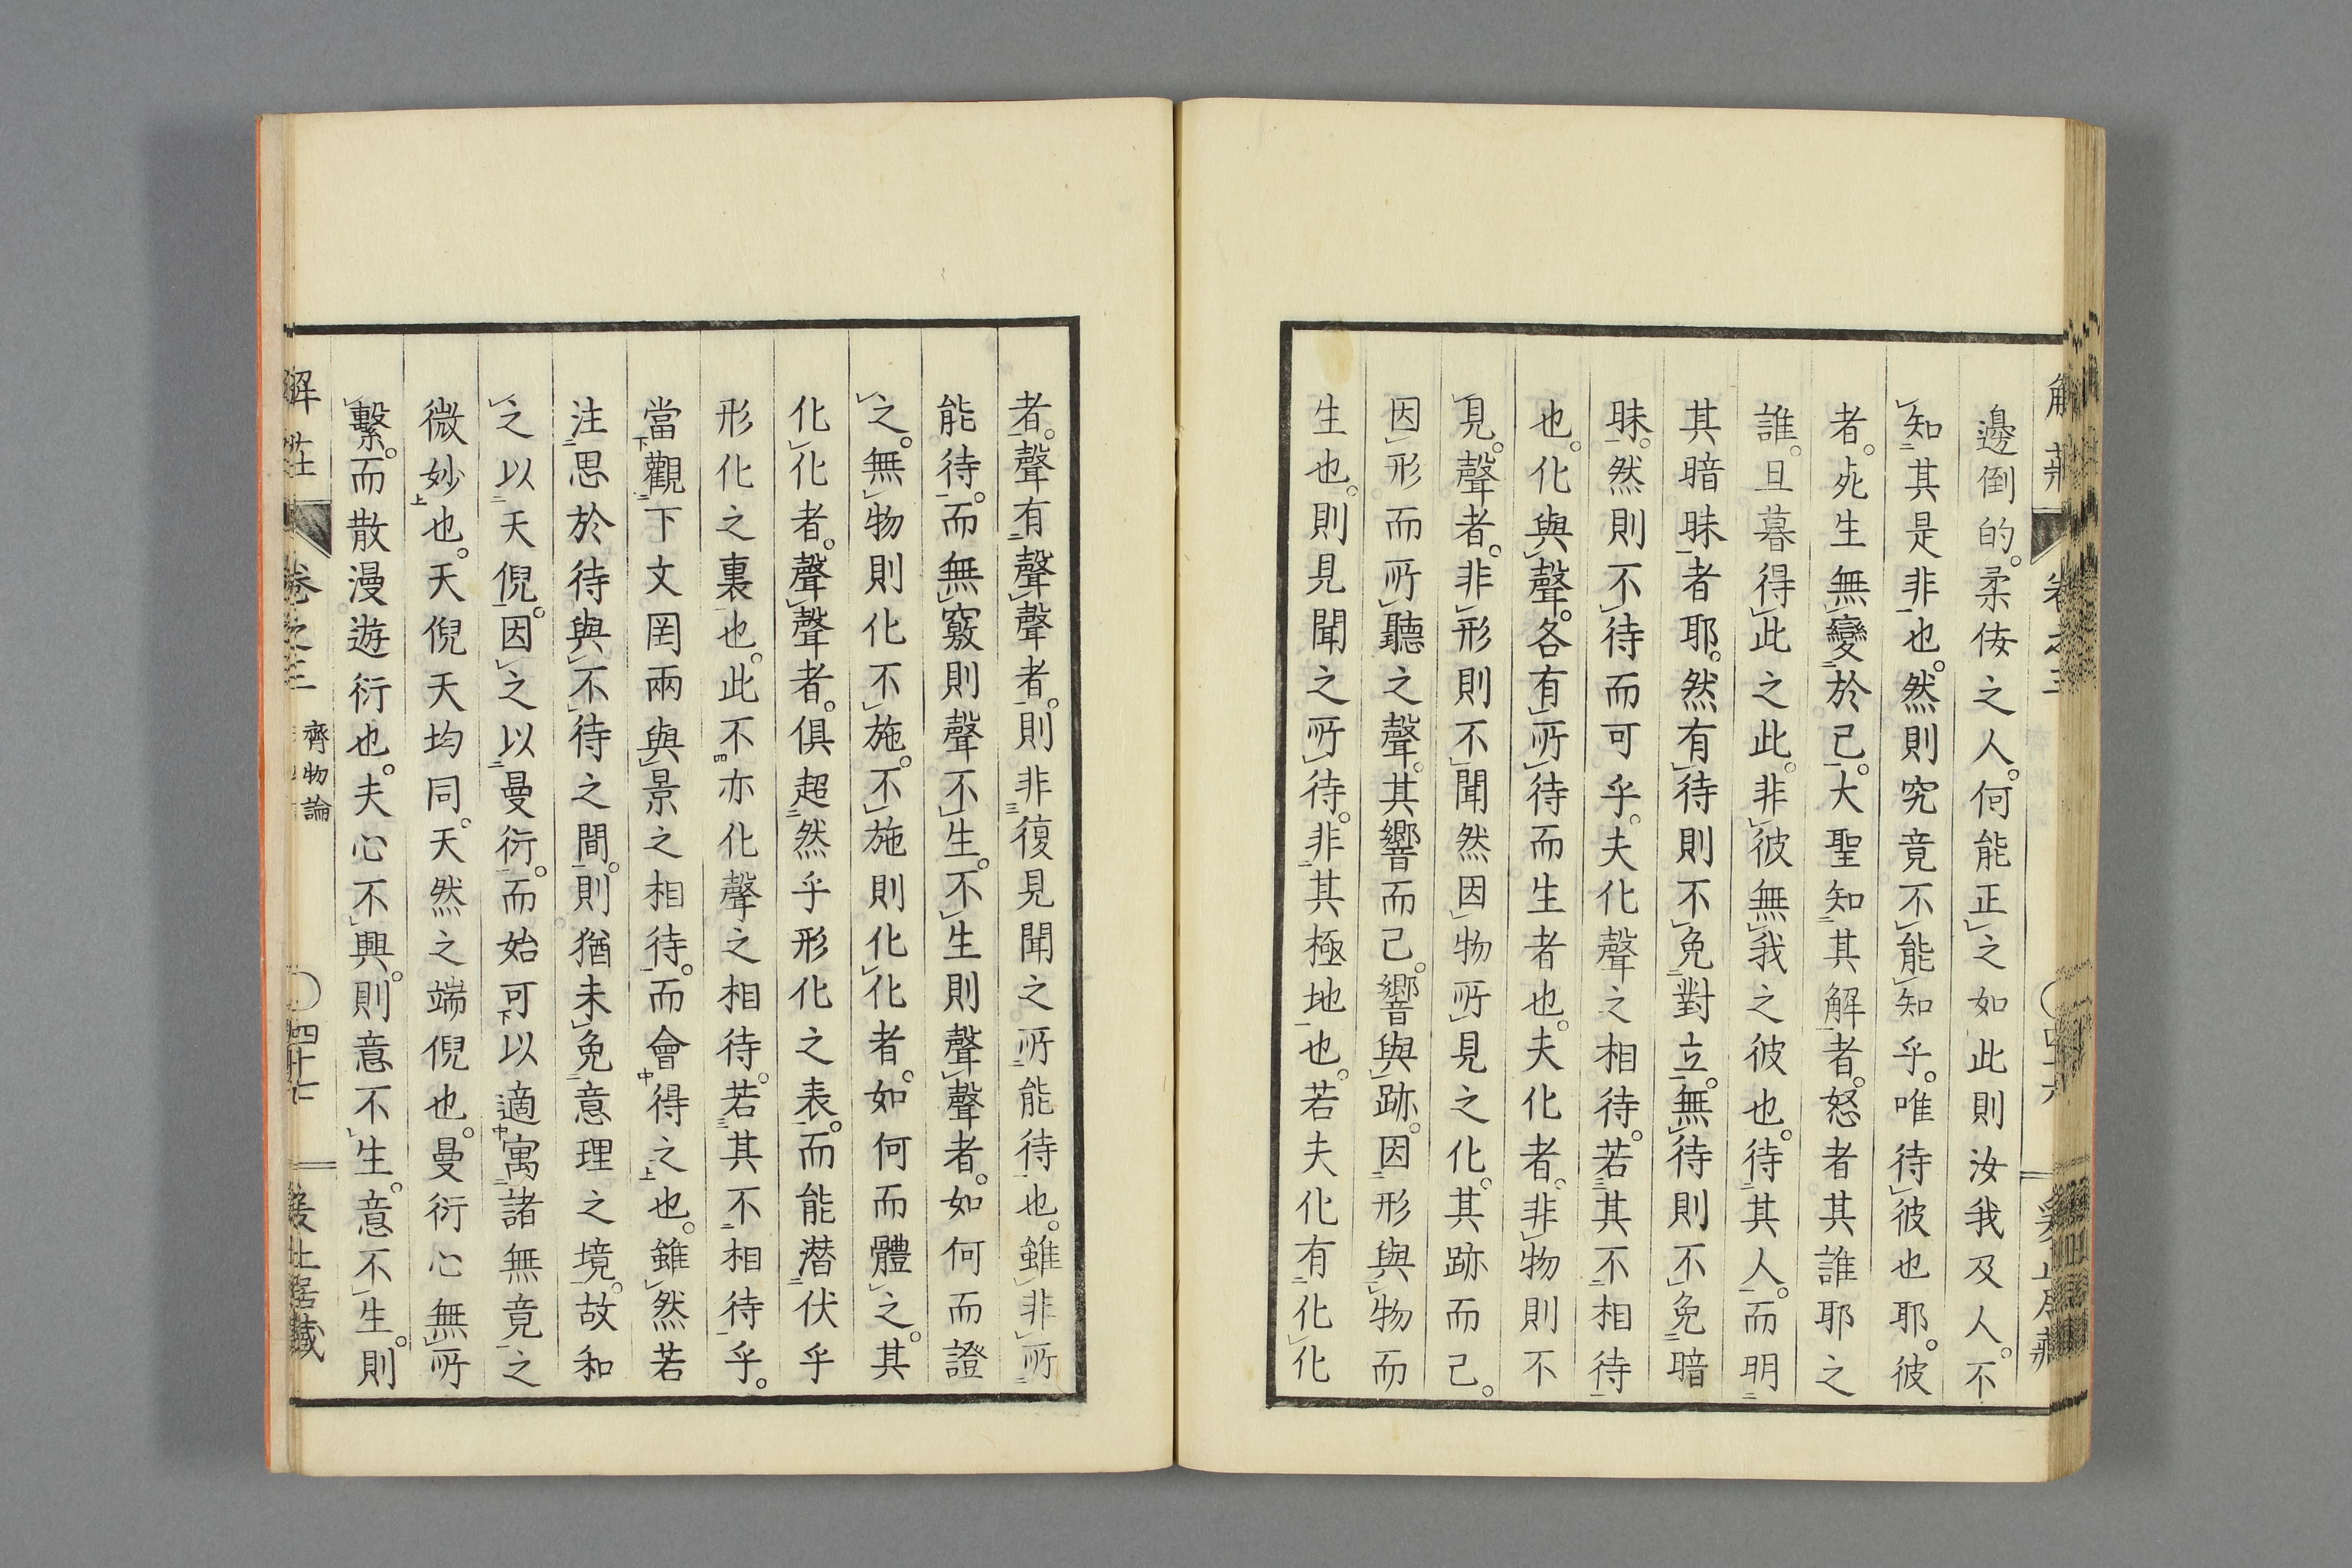 邊倒的。柔佞之人。何能正之如此則汝我及人。不
知其是非也。然則究竟不能知乎。唯待彼也耶。彼
者。死生無變於己。大聖知其解者。怒者其誰耶之
誰。旦暮得此之此。非彼無我之彼也。待其人。而明
其暗昧者耶。然有待則不免對立。無待則不免暗
昧。然則不待而可乎。夫化聲之相待。若其不相待
也。化與聲。各有所待而生者也。夫化者。非物則不
見。聲者。非形則不聞然因物所見之化。其跡而已。
因形而所聽之聲。其響而已。響與跡。因形與物而
生也。則見聞之所待。非其極地也。若夫化有化化
者。聲有聲聲者。則非復見聞之所能待也。雖非所
能待。而無竅則聲不生。不生則聲聲者。如何而證
之。無物則化不施。不施則化化者。如何而體之。其
化化者。聲聲者。俱超然乎形化之表。而能潜伏乎
形化之裏也。此不亦化聲之相待。若其不相待乎。
當觀下文罔兩與景之相待。而會得之也。雖然若
注思於待與不待之間。則猶未免意理之境。故和
之以天倪。因之以曼衍。而始可以適寓諸無竟之
微妙也。天倪天均同。天然之端倪也。曼衍心無所
繫。而散漫遊衍也。夫心不興。則意不生。意不生。則
解莊
卷之三
齊物論
四十七